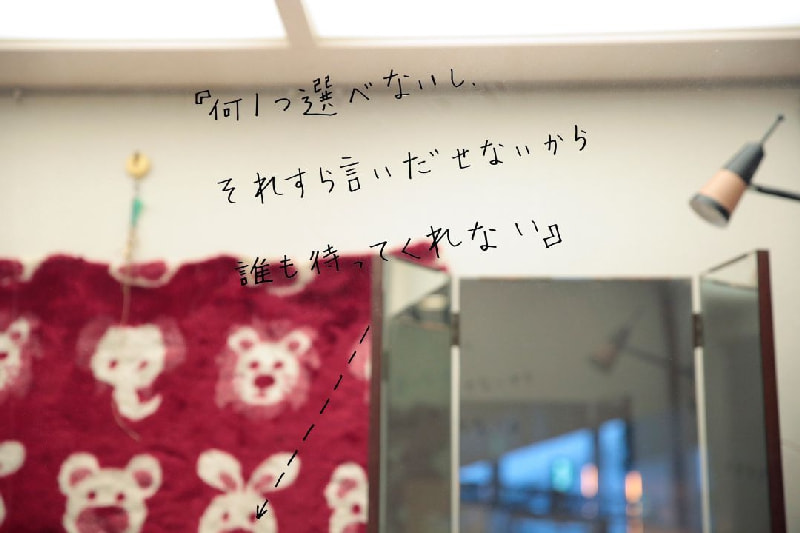 『何1つ選べないし、
それすら言いだせないから
誰も待ってくれない』